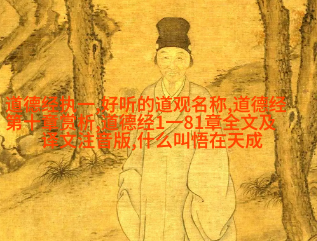 道德经执一,好听的道观名称,道德经
第十章赏析,道德经1一81章全文及
译文注音版,什么叫悟在天成